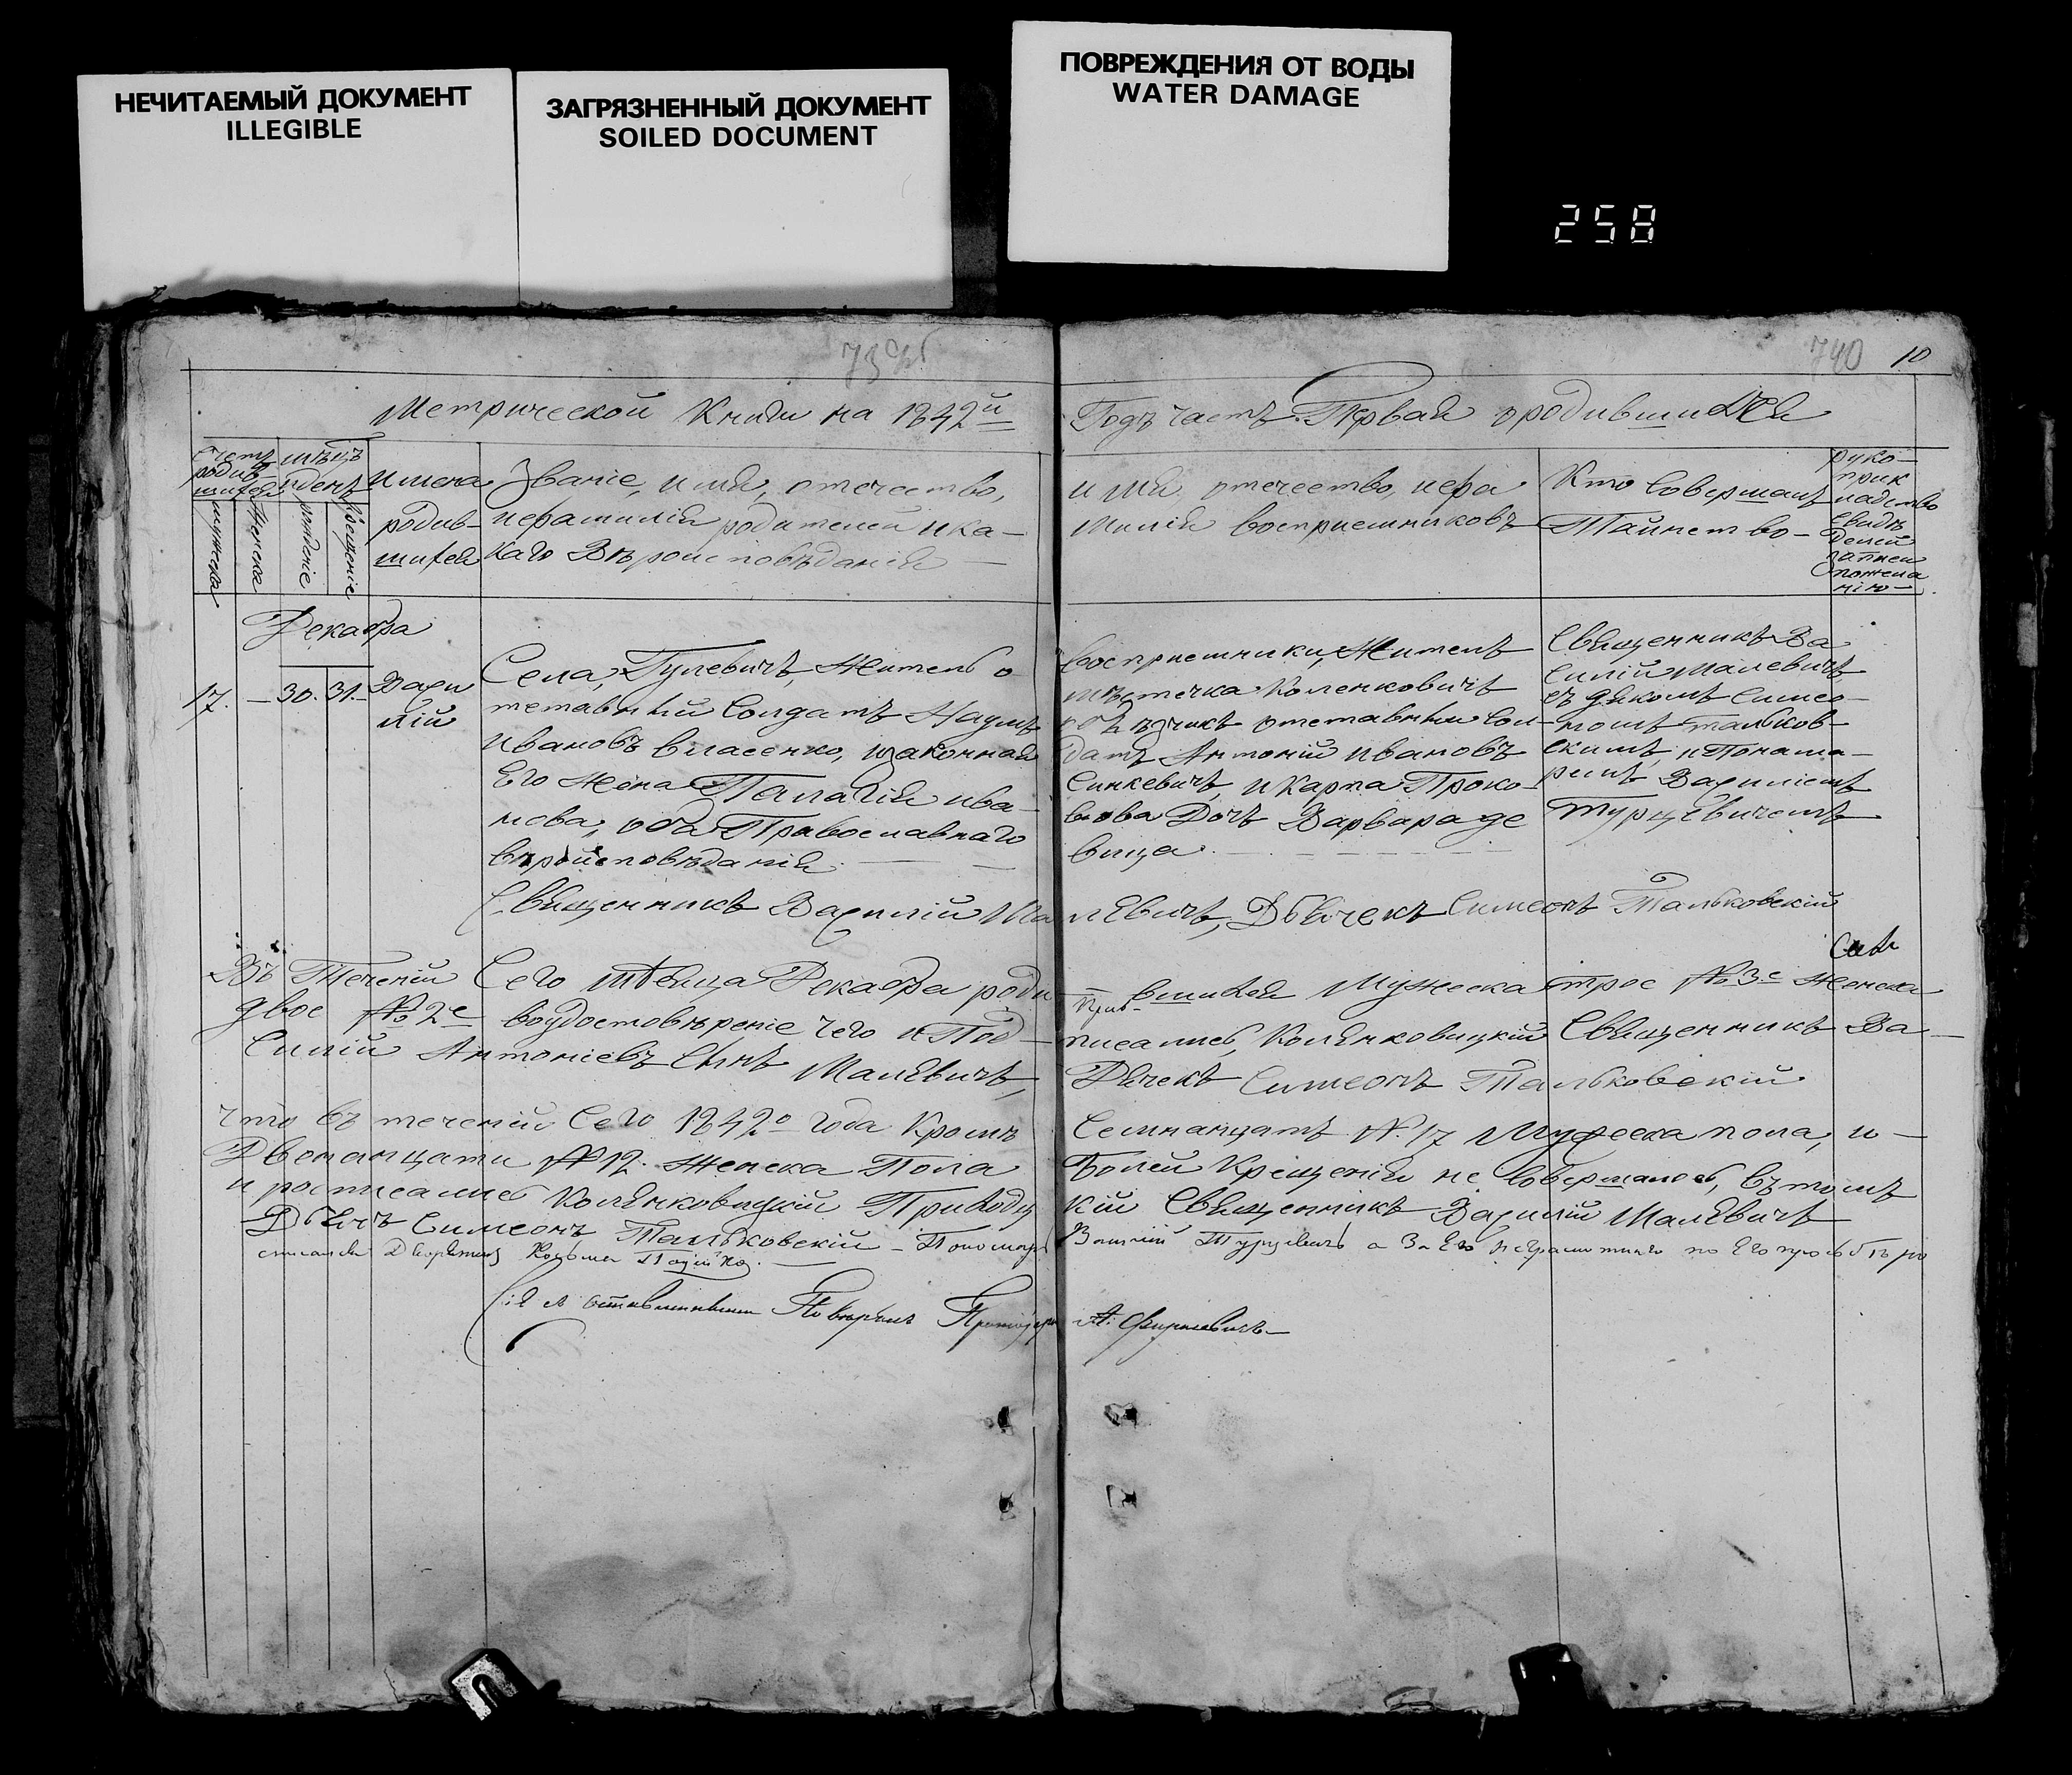 НЕЧИТАЕМЫЙ ДОКУМЕНТ
ILLEGIBLE
ЗАГРЯЗНЕННЫЙ ДОКУМЕНТ
SOILED DOCUMENT
ПОВРЕЖДЕНИЯ ОТ ВОДЫ
WATER DAMAGE
258
740 10
Метрической Книги на 1842й
Годъ часть Первая о родившихся
Счетъ родив-
шихся
мужеска
женска
мѣсяцъ
и день
рожденіе
крещеніе
имена
родив-
шихся
Званіе, имя, отечество,
и фамилія родителей и ка-
каго Вѣроисповѣданія
имя, отечество, и фа
милія воспріемниковъ
Кто Совершалъ
Таинство
руко-
прик
ладство
Свидѣ
телей
записи
по жела
нію
Декабра
17. — 30. 31. Васи
лій
Села, Гулевичъ, Житель о
тставный Солдатъ Наумъ
Ивановъ Власенко, и законная
Его Жена Палагія Ива-
нова, оба Православнаго
вѣроисповѣданія.
воспріемники, Житель
мѣстечка Коленковичъ
отставный Сол-
датъ Антоній Ивановъ
Синкевичъ, и Карпа Проко-
Дочь Варвара де
вица
Священникъ Ва
силій Малевичъ
съ дякомъ Симео-
номъ Тальков-
скимъ, и Понама-
ремъ Василіемъ
Турцевичемъ
Священникъ Василій Малевичъ, Дьячекъ Симеонъ Тальковскій
Въ Теченіи Сего мѣсяца Декабра родившихся Мужеска трое №3е Женска
двое №2е воудостовѣреніе чего и Подписались, Колѣнковицкій Священникъ Ва-
силій Антоніевъ Сынъ Малевичъ, Дьячекъ Симеонъ Тальковскій
Что въ теченіи Сего 1842о года Кромѣ Семнанцать №17 Мужеска пола, и —
Двенанцати №12. Женска Пола Болей Крещенія не Совершалось, въ томъ
и росписались Колѣнковицкій Приходскій Священникъ Василій Малевичъ
Дьячъ Симеонъ Тальковскій — Пономарь Василій Турцевичъ а За Его неграмотнаго по Его прозьбѣ ро
списался Дворянинъ Козьма